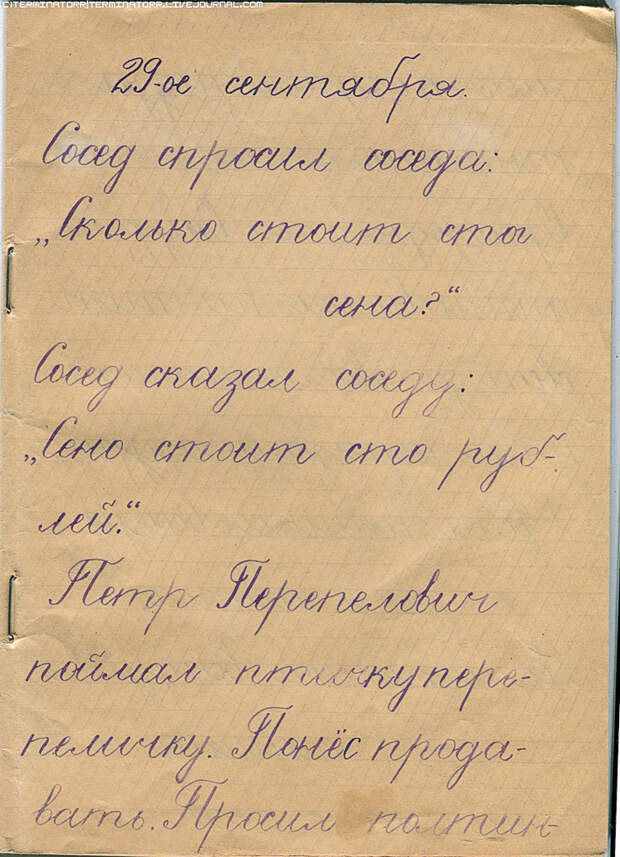 CITERMINATORR|TERMINATORR.LIVEJOURNAL.COM
29-ое сентября.
Сосед спросил соседа:
„Сколько стоит сты
сена?“
Сосед сказал соседу:
„Сено стоит сто руб-
лей.“
Петр Перепелович
поймал птичку пере-
пеличку. Понёс прода-
вать. Просил полтин-